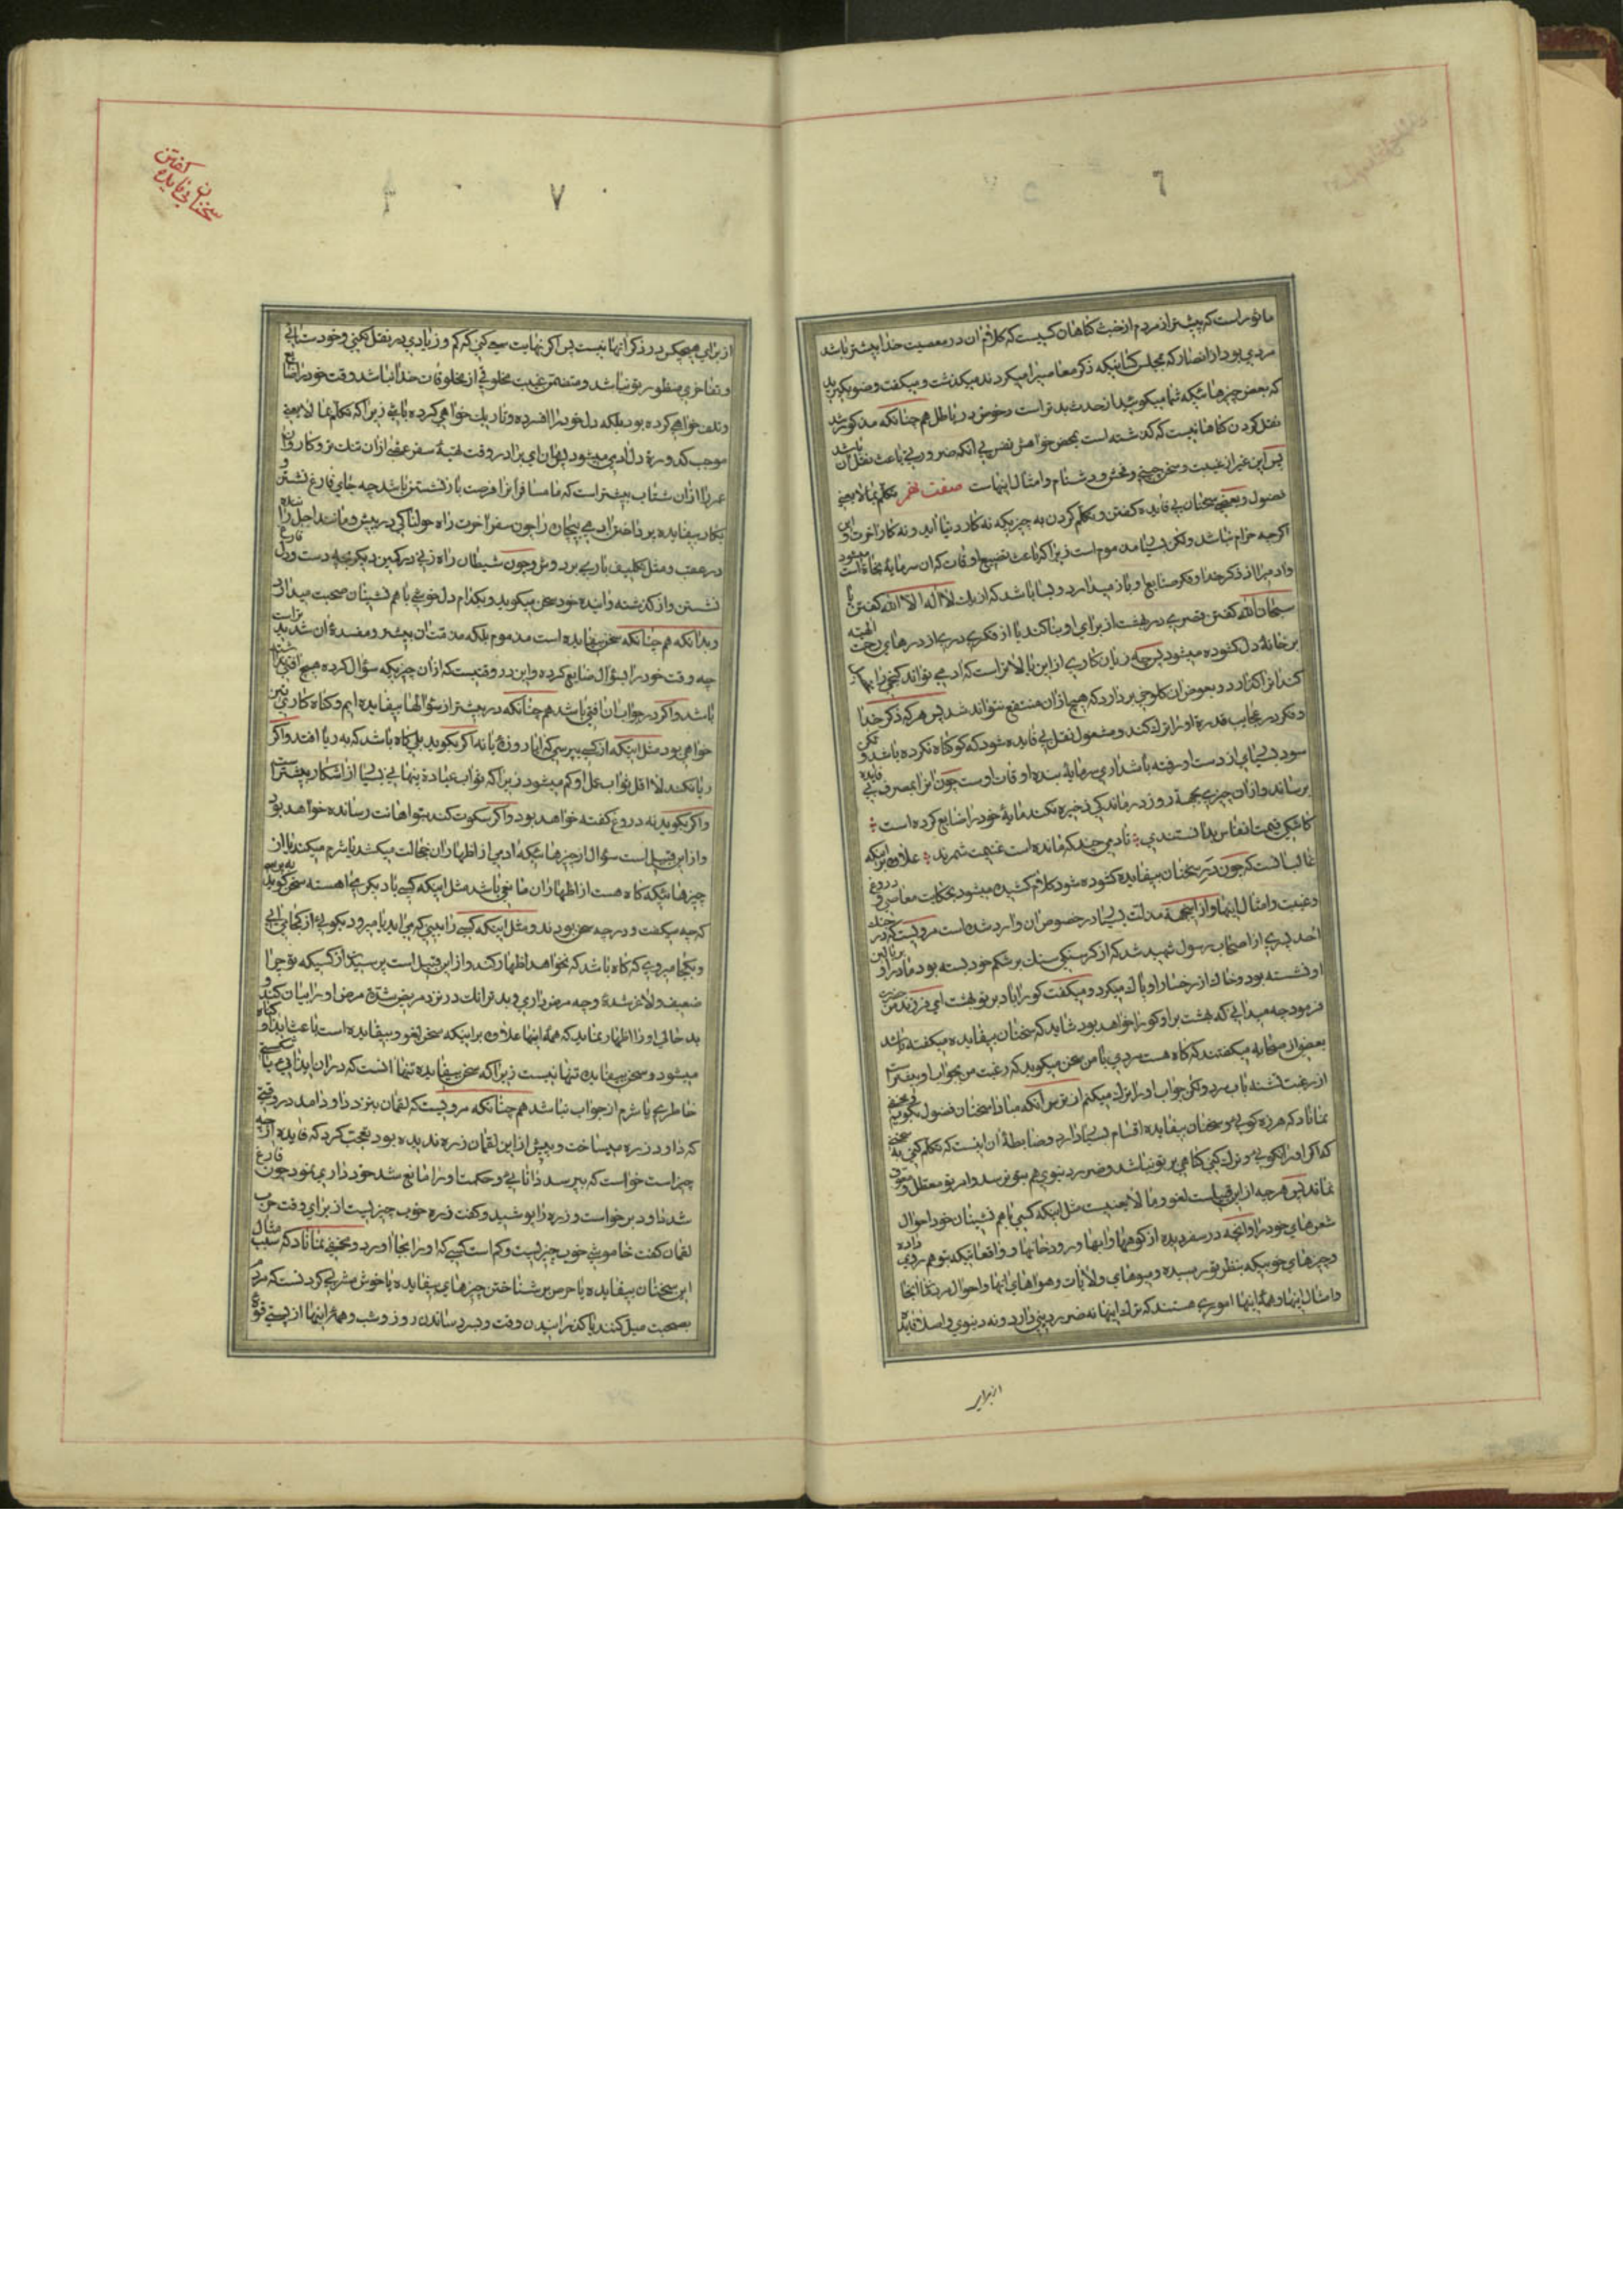 ٦
ماثور است که بیشتر از مردم از حیث گناهان کسیست که کلام ان در معصیت خدا بیشتر باشد
مردی بود از انصار که بمجلس کسانیکه ذکر معاصی را میکردند میکذشت و میکفت وضو بکیرید
که بعض چیزهائیکه شما میکوئید از حدث بدتر است و خوض در باطل هم چنانکه مذکور شد
نقل کردن کناهانیست که کذشته است بمحض خواهش نفس بی انکه ضرورتی باعث نقل ان باشد
پس این غیر از غیبت و سخن چینی و فحش و دشنام و امثال اینهاست صفت نهم تکلم بمالا یعنی
فضول و بعضی سخنان بی فایده کفتن و تکلم کردن به چیزیکه نه کار دنیا اید و نه کار اخرت و این
اکرچه حرام نباشد ولکن بسیار مذموم است زیرا که باعث تضییع اوقات که ان سرمایه نجاة است میشود
و ادمرا از ذکر خدا و فکر صنایع او باز میدارد و بسا باشد که از یك لا اله الا الله کفتن یا
سبحان الله کفتن قصری در بهشت از برای او بنا کند یا از فکری دری از درهای رحمت الهیه
بر خانهٔ دل کشوده میشود پس چه زیان کاری از این بالاتر است که ادمی تواند کنجی را
کند انرا کذارد و بعوض ان کلوخی بردارد که هیچ از ان منتفع نتواند شد پس هر که ذکر خدا
و فکر در عجایب قدرة او را ترك کند و مشغول نقل بی فایده شود که کو کناه نکرده باشد و لکن
سود بسیاری از دست او رفته باشد اری سرمایهٔ بنده اوقات اوست چون انرا بمصرف بی فایده
برساند و از ان چیزی بجهة روز درماندکی ذخیره نکند مایهٔ خود را ضایع کرده است
کاشکی قیمت انفاس بدانستندی تا دمی چند که مانده است غنیمت شمرند علاوه بر اینکه
غالبا انست که چون در سخنان بیفایده کشوده شود کلام کشیده میشود بحکایت معاصی و دروغ
و غیبت و امثال اینها و از اینجهة مذمت بسیار در خصوص ان وارد شده است مرویست که در جنك
احد پسری از اصحاب رسول شهید شد که از کرسنکی سنك بر شکم خود بسته بود مادر او بر بالین
او نشسته بود و خاك از رخسار او پاك میکرد و میکفت کوارا باد بر تو بهشت ای فرزند من حضرت
فرمود چه میدانی که بهشت بر او کوارا خواهد بود شاید که سخنان بیفایده میکفته باشد
بعضی از صحابه میکفتند که کاه هست مردی با من سخن میکوید که رغبت من بجواب او بیشتر است
از رغبت تشنه باب سرد و لکن جواب او را ترك میکنم از ترس انکه مبادا سخنان فضول بکویم و مخفی
نماناد که هرزه کوئی و سخنان بیفایده اقسام بسیار دارد و ضابطهٔ ان اینست که تکلم کنی به سخنی
که اکر او را نکوئی و ترك کنی کناهی بر تو نباشد و ضرر دنیوی هم بتو نرسد و امر تو معطل و متوقف
نماند پس هر چه از این قبیل است لغو و ما لا یعنیست مثل اینکه کسی با هم نشینان خود احوال
سفرهای خود را و انچه در سفر دیده از کوهها و ابها و رودخانها و واقعاتیکه بتو هم روی داده
و چیزهای خوبیکه بنظر تو رسیده و میوهای ولایات و هواهای انها و احوال مردمان انجا
و امثال اینها و همهٔ اینها اموری هستند که ترك اینها نه ضرر دینی دارد و نه دنیوی و اصلا فایدهٔ
از برای
سخنان بی فایده کفتن
٧
از برای هیچیك در ذکر انها نیست پس اکر نهایت سعی کنی که کم و زیادی در نقل نکنی و خودستائی
و تفاخری منظور تو نباشد و متضمن غیبت مخلوقی از مخلوقات خدا نباشد وقت خود را ضایع
و تلف خواهی کرده بود بلکه دل خود را افسرده و تاریك خواهی کرده باشی زیرا که تکلم بما لا یعنی
موجب کدورة دل ادمی میشود پس ای برادر وقت تهیهٔ سفر عقبی از ان تنك تر و کاروان
عمر را از ان شتاب بیشتر است که ما مسافرانرا فرصت باز نشستن باشد چه جای فارغ نشستن و
بکار بیفایده پرداختن ادمی بیچاره را چون سفر اخرت راه هولناکی در پیش و مانند اجل راننده
در عقب و مثل تکلیف باری بر دوش و چون شیطان راه زنی در کمین دیکر بچه دست و دل فارغ
نشستن و از کذشته و اینده خود سخن میکوید و بکدام دل خوشی با هم نشینان صحبت میدارد
و بدانکه هم چنانکه سخن بیفایده است مذموم بلکه مذمتش بیشتر و مفسدهٔ ان شدید تر است
چه وقت خود را بسؤال ضایع کرده و این در وقتیست که از ان چیزیکه سؤال کرده هیچ افتی نداشته
باشد و اکر در جواب ان افتی باشد هم چنانکه در بیشتر از سؤالها بیفایده ایم و کناه کار نیز
خواهی بود مثل اینکه از کسی بپرسی که ایا روزهٔ یا نه اکر بکوید بلی کاه باشد که به ریا افتد و اکر
ریا نکند لا اقل ثواب عمل او کم میشود زیرا که ثواب عبادة پنهانی بسیار از اشکار بیشتر است
و اکر بکوید نه دروغ کفته خواهد بود و اکر سکوت کند بتو اهانت رسانده خواهد بود
و از این قبیل است سؤال از چیزهائیکه ادمی از اظهار ان خجالت میکشد یا شرم میکند یا از
چیزهائیکه کاه هست از اظهار ان مانعی باشد مثل اینکه کسی با دیکری اهسته سخن کوید بپرسی
که چه میکفت و در چه سخن بودند و مثل اینکه کسی را ببینی که می اید یا میرود بکوئی از کجا می ائی
و بکجا میروی که کاه باشد که نخواهد اظهار کند و از این قبیل است پرسیدن از کسیکه تو چرا
ضعیف و لاغر شدهٔ و چه مرض داری و بدتر انست در نزد مریض شدة مرض او را بیان کند و
بد حالی او را اظهار نماید که همهٔ اینها علاوه بر اینکه سخن لغو و بیفایده است باعث ایذاء و کناه
میشود و سخن بیفایده تنها نیست زیرا که سخن بیفایده تنها انست که در ان ایذائی یا شکستن
خاطری یا شرم از جواب نباشد هم چنانکه مرویست که لقمان بنزد داود امد در وقتی
که داود زره میساخت و پیش از این لقمان زره ندیده بود تعجب کرد که فایده از چه
چیز است خواست که بپرسد دانائی و حکمت او را مانع شد خود داری نمود چون فارغ
شد داود برخواست و زره را پوشید و کفت زره خوب چیزیست از برای وقت حرب
لقمان کفت خاموشی خوب چیزیست و کم است کسی که او را بجا اورد و مخفی نماناد که سبب
این سخنان بیفایده یا حرص بر شناختن چیزهای بیفایده یا خوش مشربی کردنست که مردم
بصحبت میل کنند یا کذرانیدن وقت و بسر رساندن روز و شب و همهٔ اینها از پستی قوة